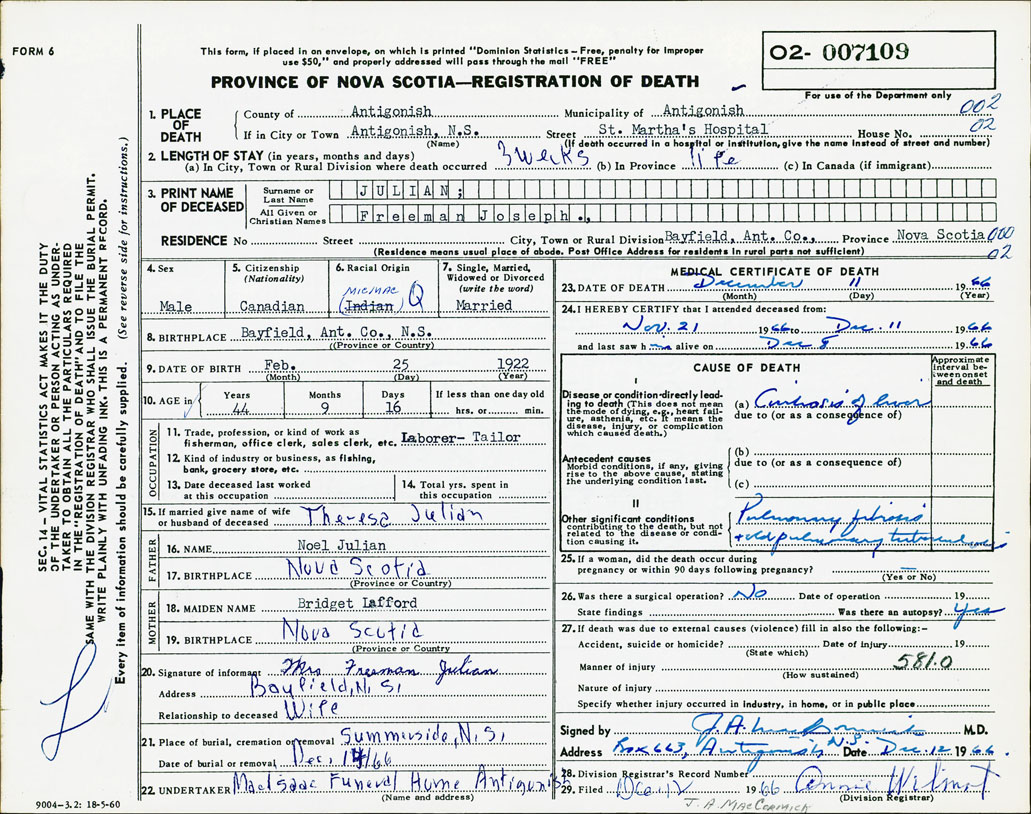 FORM 6
This form, if placed in an envelope, on which is printed "Dominion Statistics – Free, penalty for improper
use $50," and properly addressed will pass through the mail "FREE"
PROVINCE OF NOVA SCOTIA—REGISTRATION OF DEATH
O2- 007109
For use of the Department only
1. PLACE OF DEATH
County of Antigonish Municipality of Antigonish 002
If in City or Town Antigonish, N.S. Street St. Martha's Hospital House No. 02
(Name) (If death occurred in a hospital or institution, give the name instead of street and number)
2. LENGTH OF STAY (in years, months and days)
(a) In City, Town or Rural Division where death occurred 3 weeks (b) In Province life (c) In Canada (if immigrant)
3. PRINT NAME OF DECEASED
Surname or Last Name JULIAN;
All Given or Christian Names Freeman Joseph.,
RESIDENCE No Street City, Town or Rural Division Bayfield, Ant. Co., Province Nova Scotia 000
(Residence means usual place of abode. Post Office Address for residents in rural parts not sufficient) 02
4. Sex
Male
5. Citizenship
(Nationality)
Canadian
6. Racial Origin
MICMAC
(Indian)
7. Single, Married,
Widowed or Divorced
(write the word)
Married
8. BIRTHPLACE Bayfield, Ant. Co., N.S.
(Province or Country)
9. DATE OF BIRTH Feb. 25 1922
(Month) (Day) (Year)
10. AGE in
Years Months Days If less than one day old
44 9 16 hrs. or min.
OCCUPATION
11. Trade, profession, or kind of work as
fisherman, office clerk, sales clerk, etc. Laborer- Tailor
12. Kind of industry or business, as fishing,
bank, grocery store, etc.
13. Date deceased last worked
at this occupation
14. Total yrs. spent in
this occupation
15. If married give name of wife
or husband of deceased Theresa Julian
FATHER
16. NAME Noel Julian
17. BIRTHPLACE Nova Scotia
(Province or Country)
MOTHER
18. MAIDEN NAME Bridget Lafford
19. BIRTHPLACE Nova Scotia
(Province or Country)
20. Signature of informant Mrs Freeman Julian
Address Bayfield, N.S.
Relationship to deceased Wife
21. Place of burial, cremation or removal Summerside, N.S.
Date of burial or removal Dec. 14/66
22. UNDERTAKER MacIsaac Funeral Home Antigonish
(Name and address)
MEDICAL CERTIFICATE OF DEATH
23. DATE OF DEATH December 11 1966
(Month) (Day) (Year)
24. I HEREBY CERTIFY that I attended deceased from:
Nov. 21 1966 to Dec. 11 1966
and last saw him alive on Dec 8 1966
CAUSE OF DEATH
Approximate
interval be-
tween onset
and death
I
Disease or condition directly lead-
ing to death (This does not mean
the mode of dying, e.g., heart fail-
ure, asthenia, etc. It means the
disease, injury, or complication
which caused death.)
(a) Cirrhosis of liver
due to (or as a consequence of)
Antecedent causes
Morbid conditions, if any, giving
rise to the above cause, stating
the underlying condition last.
(b)
due to (or as a consequence of)
(c)
II
Other significant conditions
contributing to the death, but not
related to the disease or condi-
tion causing it.
Pulmonary fibrosis
+ old pulmonary tuberculosis
25. If a woman, did the death occur during
pregnancy or within 90 days following pregnancy? —
(Yes or No)
26. Was there a surgical operation? No Date of operation 19
State findings Was there an autopsy? Yes
27. If death was due to external causes (violence) fill in also the following:–
Accident, suicide or homicide? Date of injury 19
(State which)
Manner of injury 581.0
(How sustained)
Nature of injury
Specify whether injury occurred in industry, in home, or in public place
Signed by J.A. MacCormick M.D.
Address Box 663, Antigonish, N.S. Date Dec. 12 1966.
28. Division Registrar's Record Number
29. Filed Dec. 12 1966 Connie Wilmot
(Division Registrar)
J. A. MACCORMICK
9004-3.2: 18-5-60
SEC. 14 – VITAL STATISTICS ACT MAKES IT THE DUTY
OF THE UNDERTAKER OR PERSON ACTING AS UNDER-
TAKER TO OBTAIN ALL THE PARTICULARS REQUIRED
IN THE "REGISTRATION OF DEATH" AND TO FILE THE
SAME WITH THE DIVISION REGISTRAR WHO SHALL ISSUE THE BURIAL PERMIT.
WRITE PLAINLY WITH UNFADING INK. THIS IS A PERMANENT RECORD.
Every item of information should be carefully supplied. (See reverse side for instructions.)